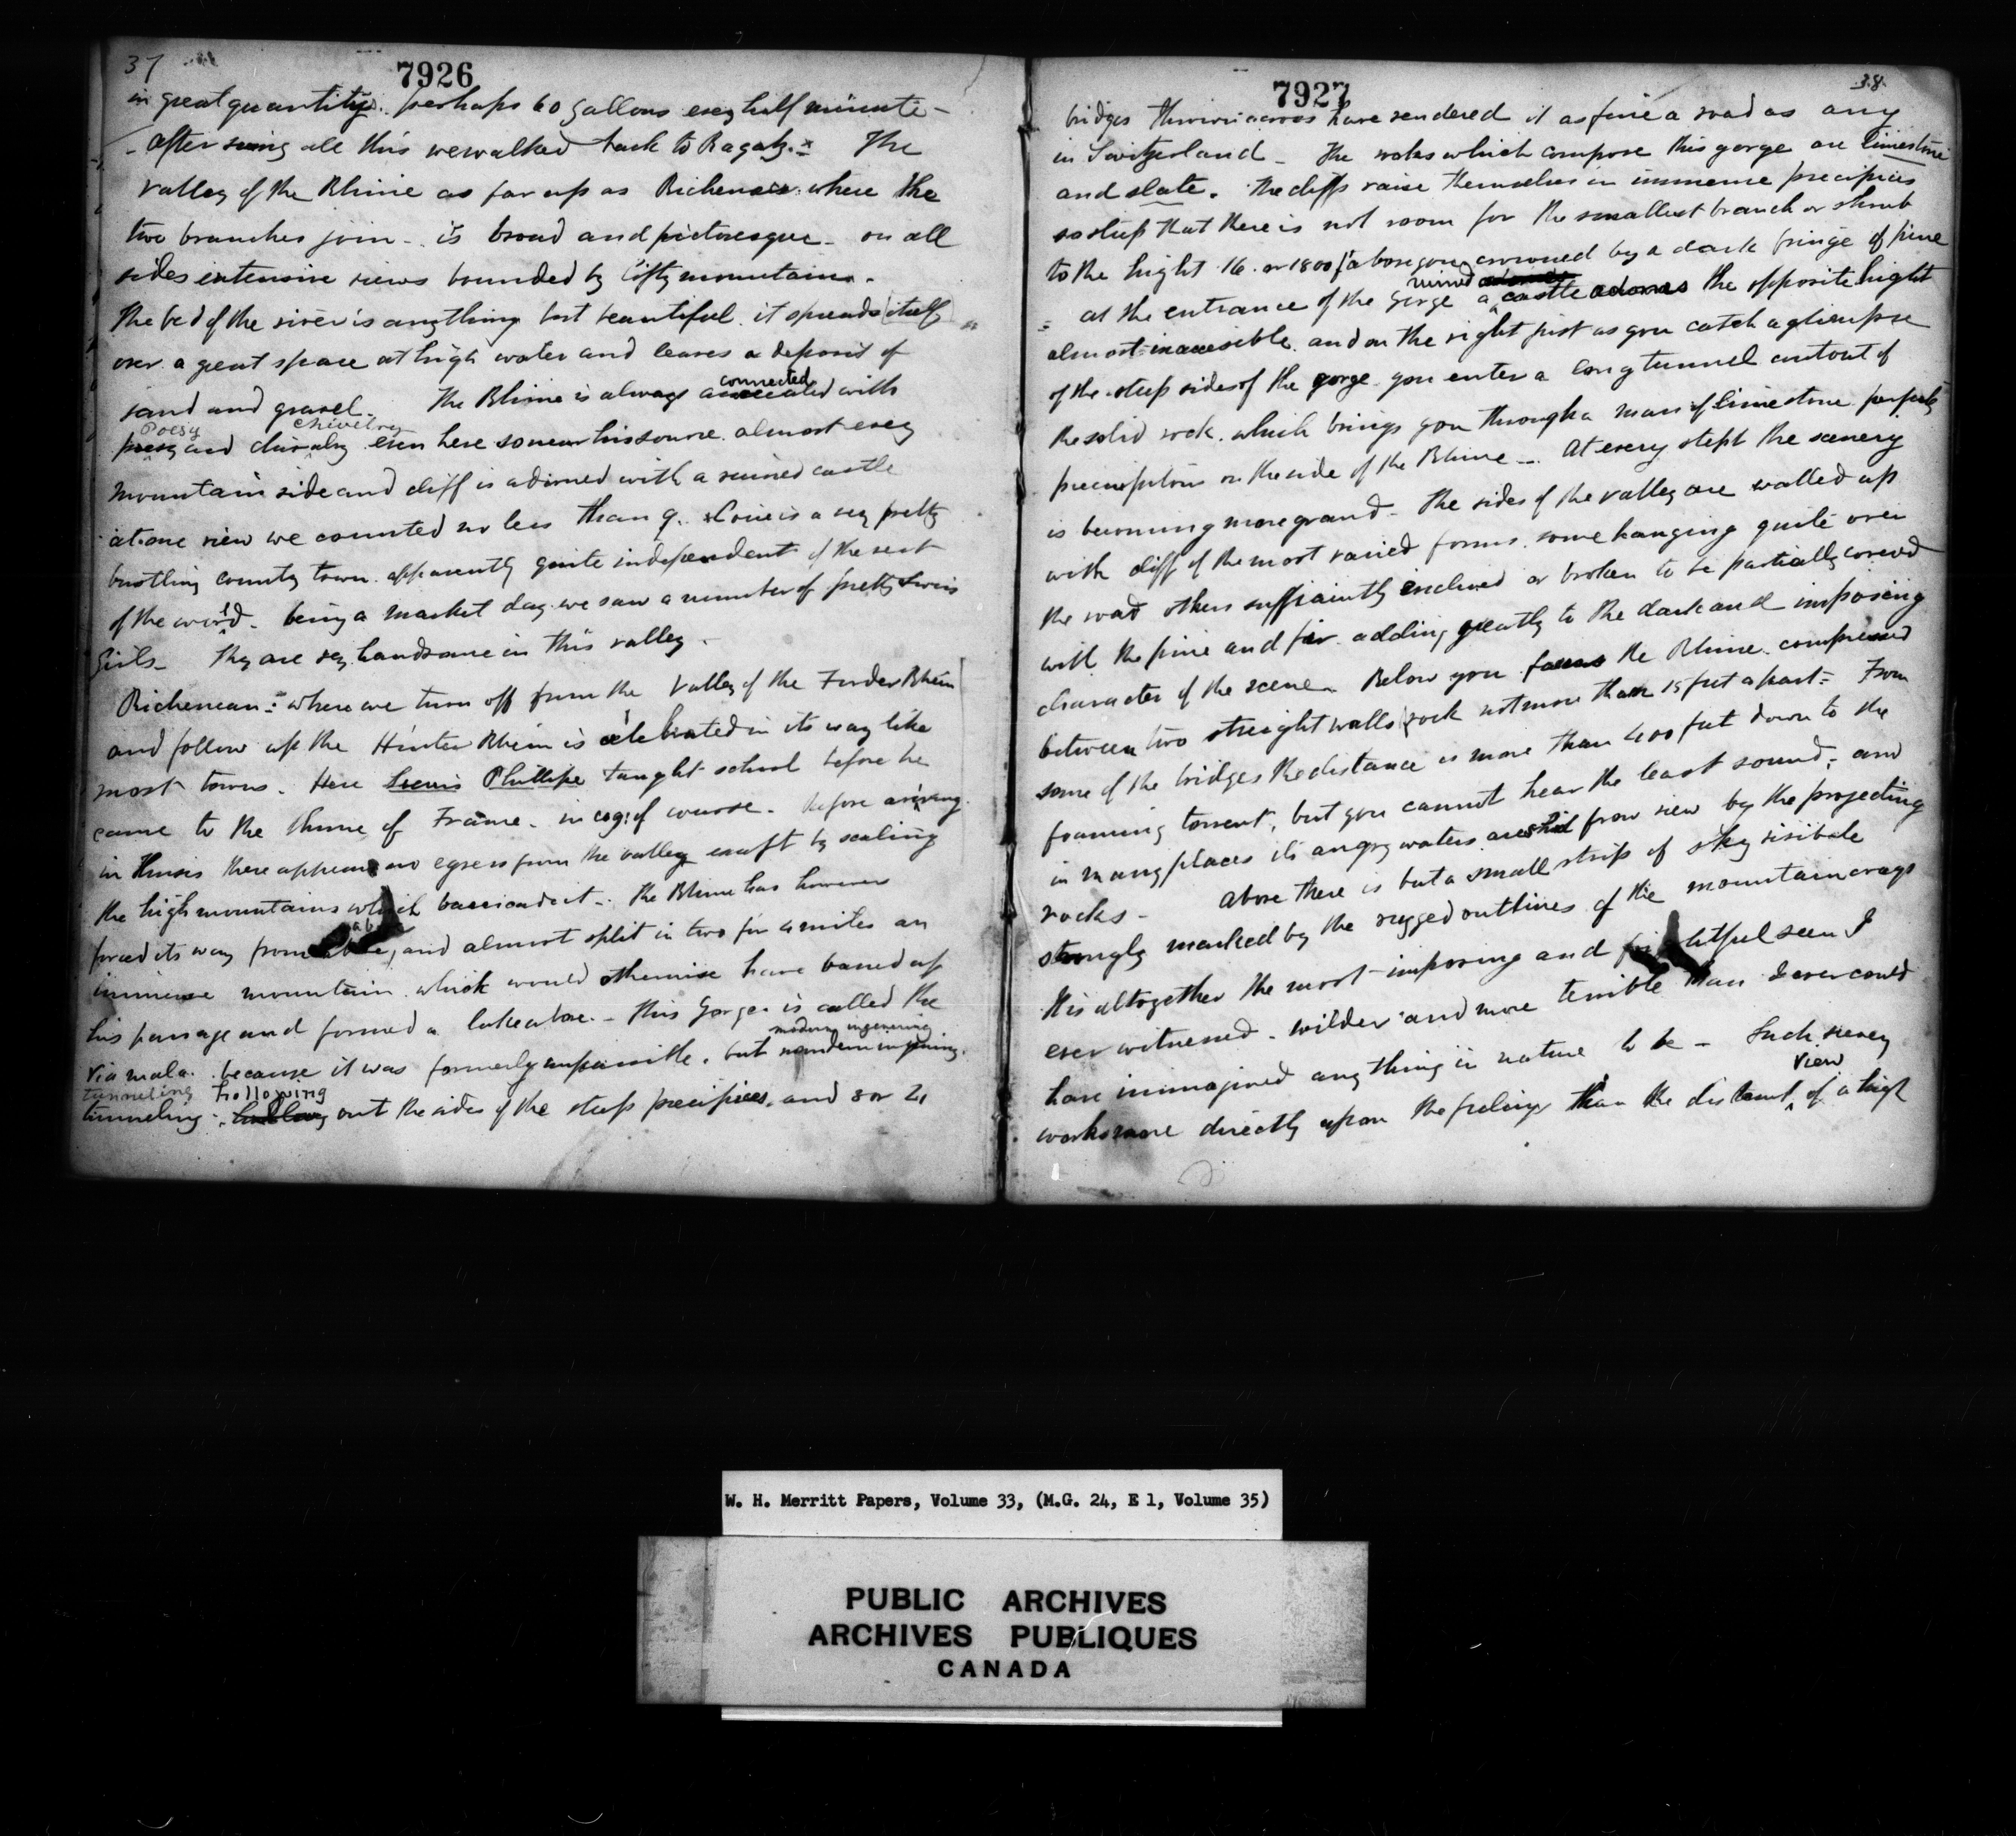 37
7926
in great quantity. perhaps 60 gallons every half minute -
- After seeing all this we walked back to Ragatz. x The
valley of the Rhine as far up as Richenau. where the
two branches join - is broad and picturesque - on all
sides extensive views bounded by lofty mountains.
The bed of the river is anything but beautiful. it spreads itself
over a great space at high water and leaves a deposit of
connected
sand and gravel. The Rhine is always with
Poesy chivelry
poesy and chivalry even here so near his source. almost every
mountain side and cliff is adorned with a ruined castle
at one view we counted no less than 9. Coire is a very pretty
bustling county town. apparently quite independent of the rest
of the world. being a market day we saw a number of pretty Swiss
Girls - They are very handsome in this valley.
Richenau = where we turn off from the Valley of the Forder Rhein
and follow up the Hinter Rhein is celebrated in its way like
most towns. Here Louis Phillipe taught school before he
came to the throne of France. in cog: of course. Before ariving
in Thusis there appears no egress from the valley except by scaling
the high mountains which barricade it - The Rhine has however
above
forced its way from above, and almost split in two for 4 miles an
immense mountain which would otherwise have barred up
his passage and formed a lake above. - This Gorge is called the
modern ingenering
Via mala. because it was formerly impassible. but modern ingening.
tunneling hollowing
tunneling. out the sides of the steep precipices. and 3 or 4
7927
38.
bridges thrown across have rendered it as fine a road as any
in Switzerland - The rocks which compose this gorge are limestone
and slate. The cliffs raise themselves in immense precipices
so steep that there is not room for the smallest branch or shrub
to the hight 16. or 1800 f above you crowned by a dark fringe of pine
ruined
= at the entrance of the Gorge a castle adorns the opposite hight
almost inaccesible. and on the right just as you catch a glimpse
of the steep sides of the gorge you enter a long tunnel cut out of
the solid rock. which brings you through a mass of limestone perfectly
precipitous on the side of the Rhine - At every stept the scenery
is becoming more grand - The sides of the valley are walled up
with cliff of the most varied forms. some hanging quite over
the road others sufficiently inclined or broken to be partially covered
with the pine and fir adding greatly to the dark and imposing
character of the scene. Below you foams the Rhine. compressed
between two streight walls rock not more than 15 feet apart = From
some of the bridges the distance is more than 400 feet down to the
foaming torrent, but you cannot hear the least sound; and
in many places its angry waters are hid from view by the projecting
rocks - above there is but a small strip of sky visibale
strongly marked by the rugged outlines of the mountain crags
It is altogether the most imposing and frightful seen I
ever witnessed. wilder and more terrible than I ever could
have inmagined any thing in nature to be - Such scenery
view
works more directly upon the feelings than the distant ^ of a high
W. H. Merritt Papers, Volume 33, (M.G. 24, E 1, Volume 35)
PUBLIC ARCHIVES
ARCHIVES PUBLIQUES
CANADA